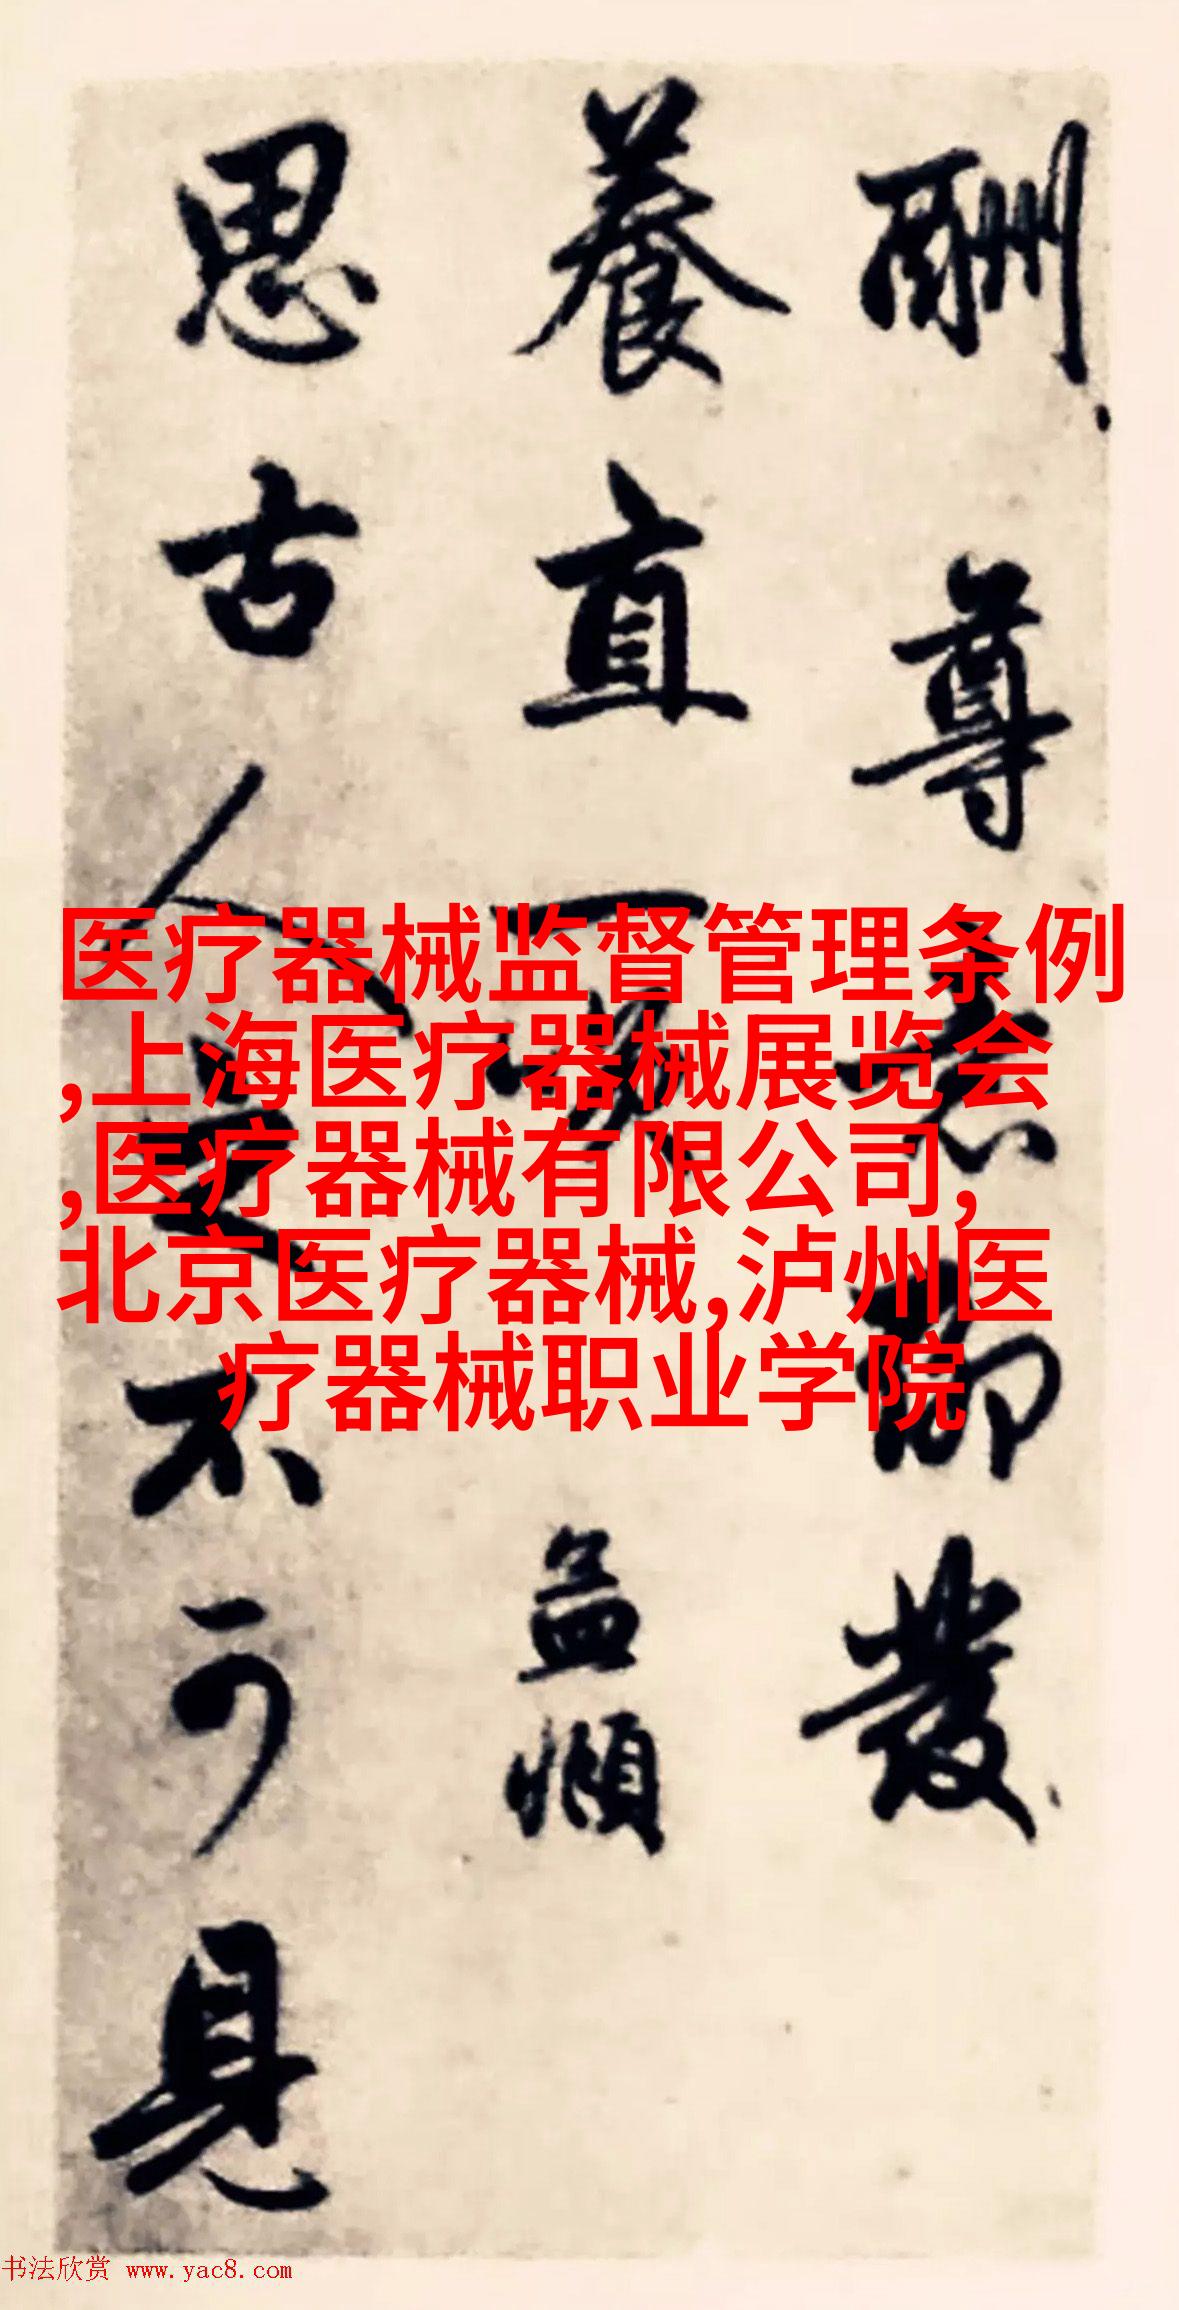 酬尊意聊發
養直一頤孟頫
思古人之不可見
医疗器械监督管理条例
,上海医疗器械展览会
,医疗器械有限公司,
北京医疗器械,泸州医
疗器械职业学院
书法欣赏 www.yac8.com